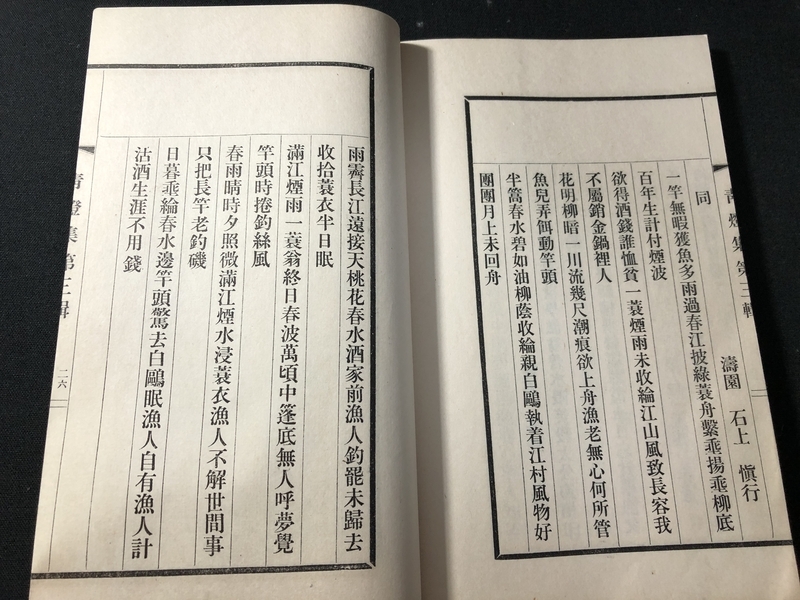 青燈集第三輯
同 濤園 石上 愼行
一竿無暇獲魚多雨過春江披綠蓑舟繫垂揚垂柳底
百年生計付煙波
欲得酒錢誰恤貧一蓑煙雨未收綸江山風致長容我
不屬銷金鍋裡人
花明柳暗一川流幾尺潮痕欲上舟漁老無心何所管
魚兒弄餌動竿頭
半篙春水碧如油柳蔭收綸親白鷗執着江村風物好
團團月上未回舟
雨霽長江遠接天桃花春水酒家前漁人釣罷未歸去
收拾蓑衣半日眠
滿江煙雨一蓑翁終日春波萬頃中篷底無人呼夢覺
竿頭時捲釣絲風
春雨晴時夕照微滿江煙水浸蓑衣漁人不解世間事
只把長竿老釣磯
日暮垂綸春水邊竿頭驚去白鷗眠漁人自有漁人計
沽酒生涯不用錢
青燈集第三輯
二六